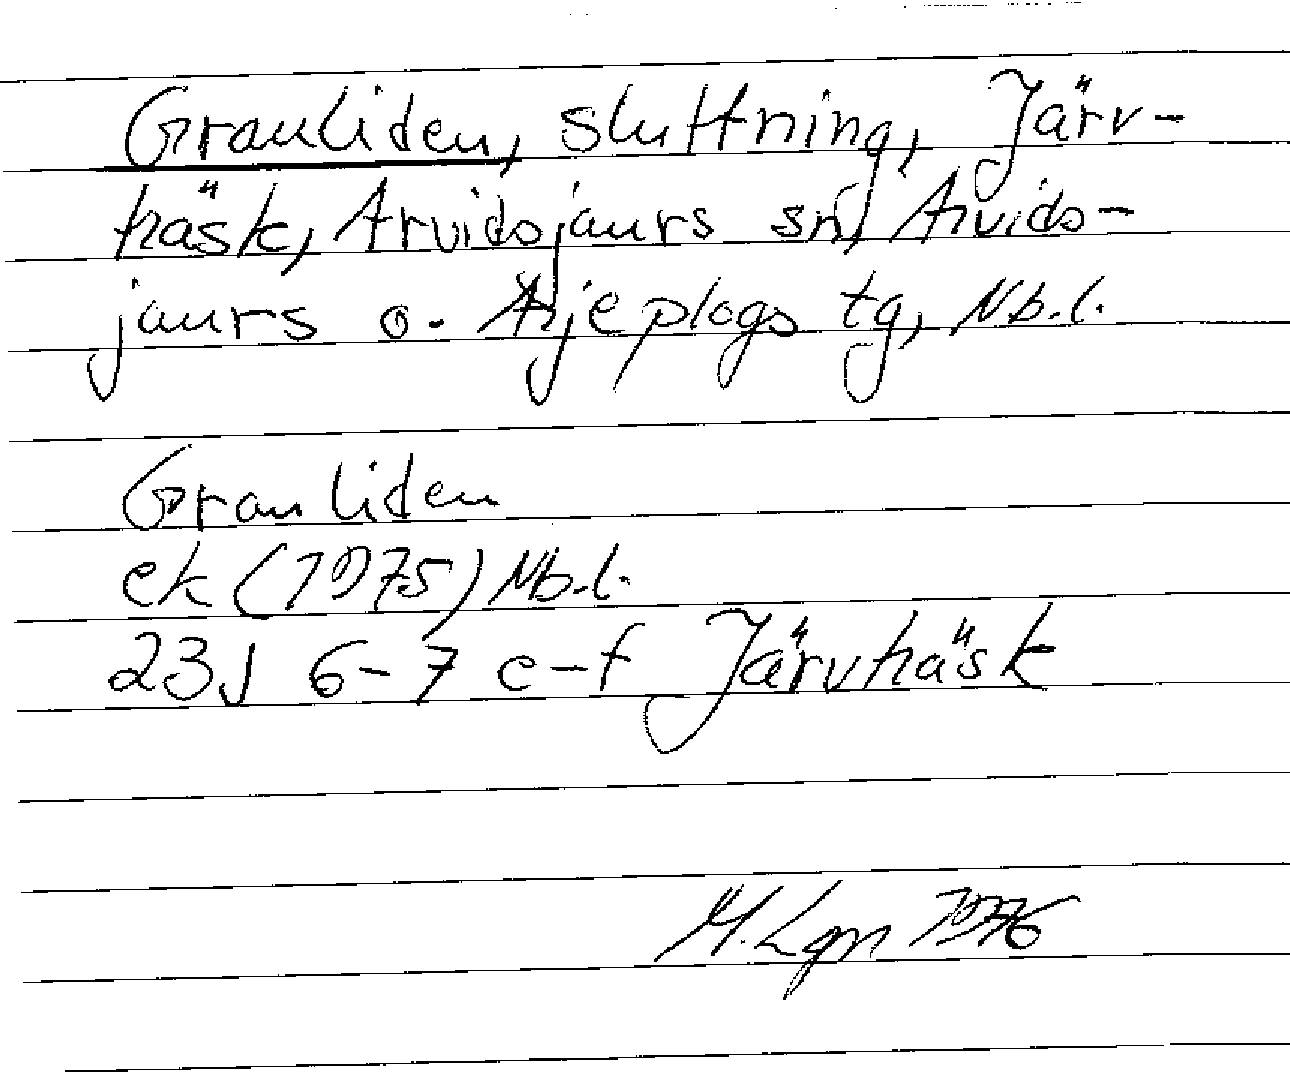 Granliden, sluttning, Järv-
träsk, Arvidsjaurs sn, Arvids-
jaurs o. Arjeplogs tg, Nb.l.
Granliden
ek (1975) Nb.l.
23J 6-7 e-f Järvträsk
M. Lgn 1976